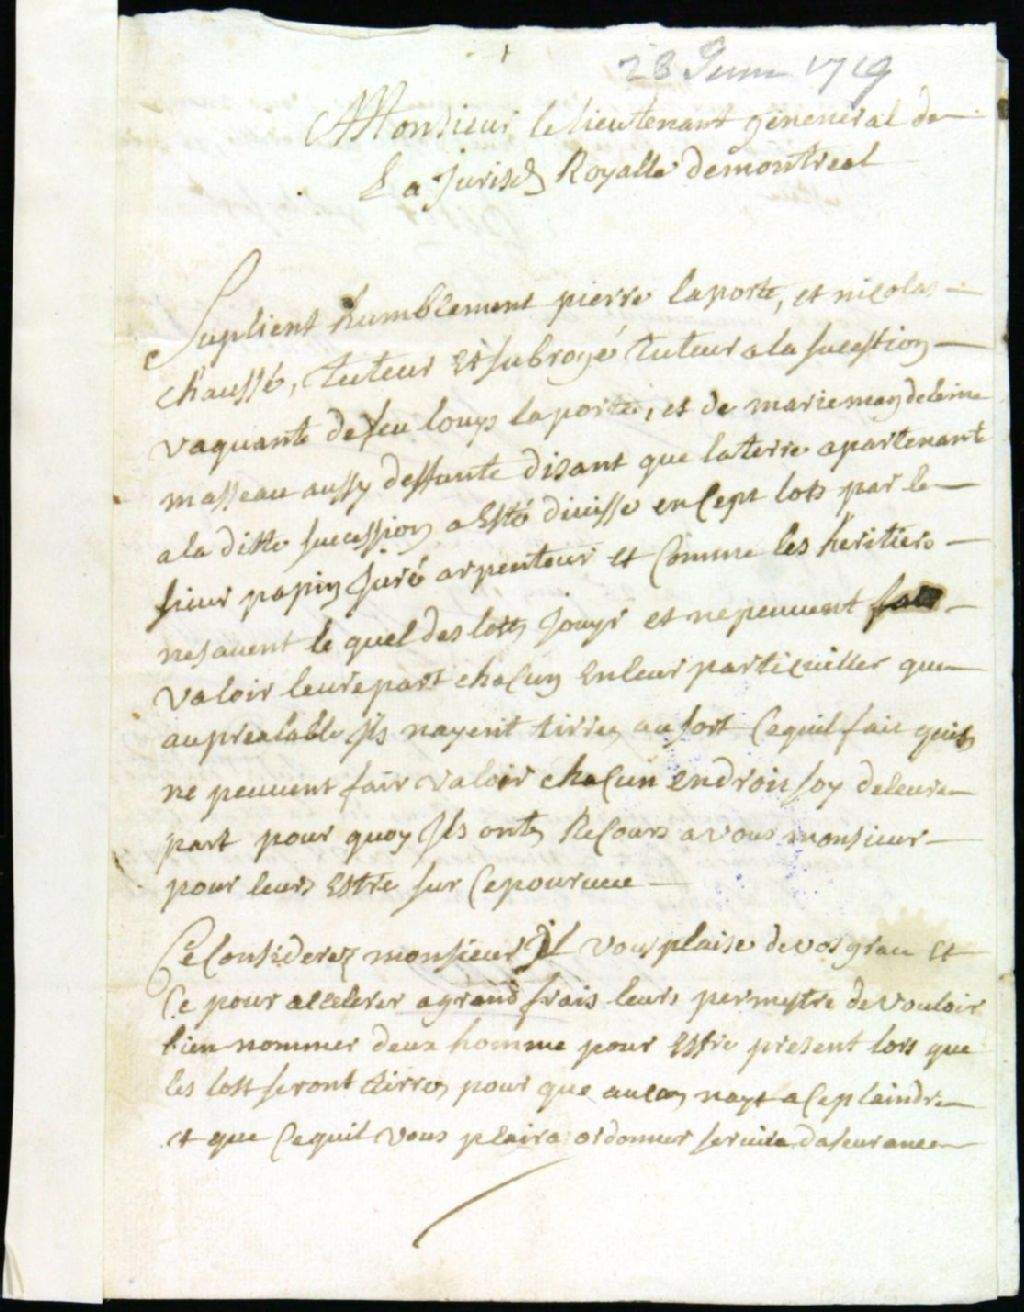 28 Juin 1719
A Monsieur le lieutenant géneneral de
La Jurisd Royalle de montreal
Suplient humblement pierre laporte, et nicolas
chaussé, tuteur Et subrogé tuteur a la sucession
vaquante de feu louys laporte, et de marie magdeleine
masseau aussy deffunte disant que la terre apartenante
a la ditte sucession a Esté divisse en Cept lots par le
sieur papin Juré arpenteur et Comme les heritiers
ne savent le quel des lots Jouyr et ne peuvent
valoir leure part chacun En leur particuiller que
au prealable Ils nayent tirrez au sort Ce quil fait quis
ne peuvent fair valoir chacun en droit soy de leure
part pour quoy Ils ont Recours a vous monsieur
pour leurs Estre sur Ce pourvue
Ce Considerez monsieur Il vous plaise de vos grace Et
Ce pour accelerer a grand frais leurs permeytre de vouloir
bien nommer deux homme pour Estre present lors que
les lost seront tirrez pour que aucun nayt a Ce plaindre
et que Ce quil vous plaira ordonner servira daseurance